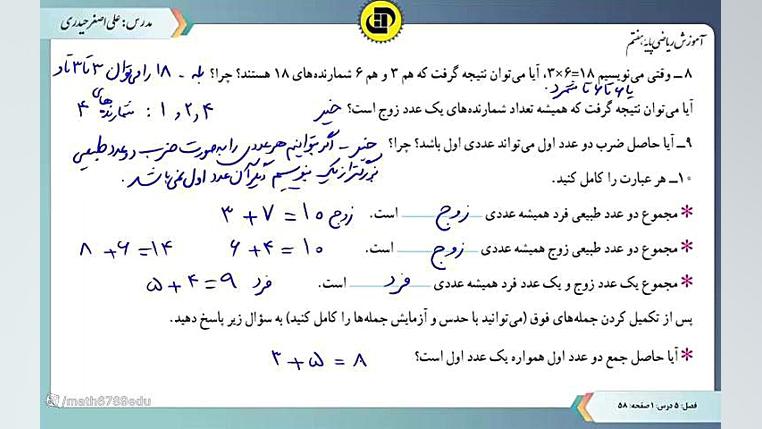 مدرس: علی اصغر حیدری
آموزش ریاضی پایه هفتم
۸ـ وقتی می‌نویسیم ۱۸=۶×۳، آیا می‌توان نتیجه گرفت که هم ۳ و هم ۶ شمارنده‌های ۱۸ هستند؟ چرا؟ بله - ۱۸ را می‌توان ۳تا ۳تا و
یا ۶تا ۶تا شمرد.
آیا می‌توان نتیجه گرفت که همیشه تعداد شمارنده‌های یک عدد زوج است؟ خیر شمارنده‌های ۴ : ۱,۲,۴
۹ـ آیا حاصل ضرب دو عدد اول می‌تواند عددی اول باشد؟ چرا؟ خیر - اگر بتوانیم هر عددی را به صورت ضرب دو عدد طبیعی
بزرگتر از یک بنویسیم دیگر آن عدد اول نمی‌باشد.
۱۰ـ هر عبارت را کامل کنید.
* مجموع دو عدد طبیعی فرد همیشه عددی زوج است. ۳+۷=۱۰ زوج
* مجموع دو عدد طبیعی زوج همیشه عددی زوج است. ۶+۴=۱۰ ۸+۶=۱۴
* مجموع یک عدد زوج و یک عدد فرد همیشه عددی فرد است. ۵+۴=۹ فرد
پس از تکمیل کردن جمله‌های فوق (می‌توانید با حدس و آزمایش جمله‌ها را کامل کنید) به سؤال زیر پاسخ دهید.
* آیا حاصل جمع دو عدد اول همواره یک عدد اول است؟ ۳+۵=۸
/math6789edu
فصل: ۵ درس: ۱ صفحه: ۵۸